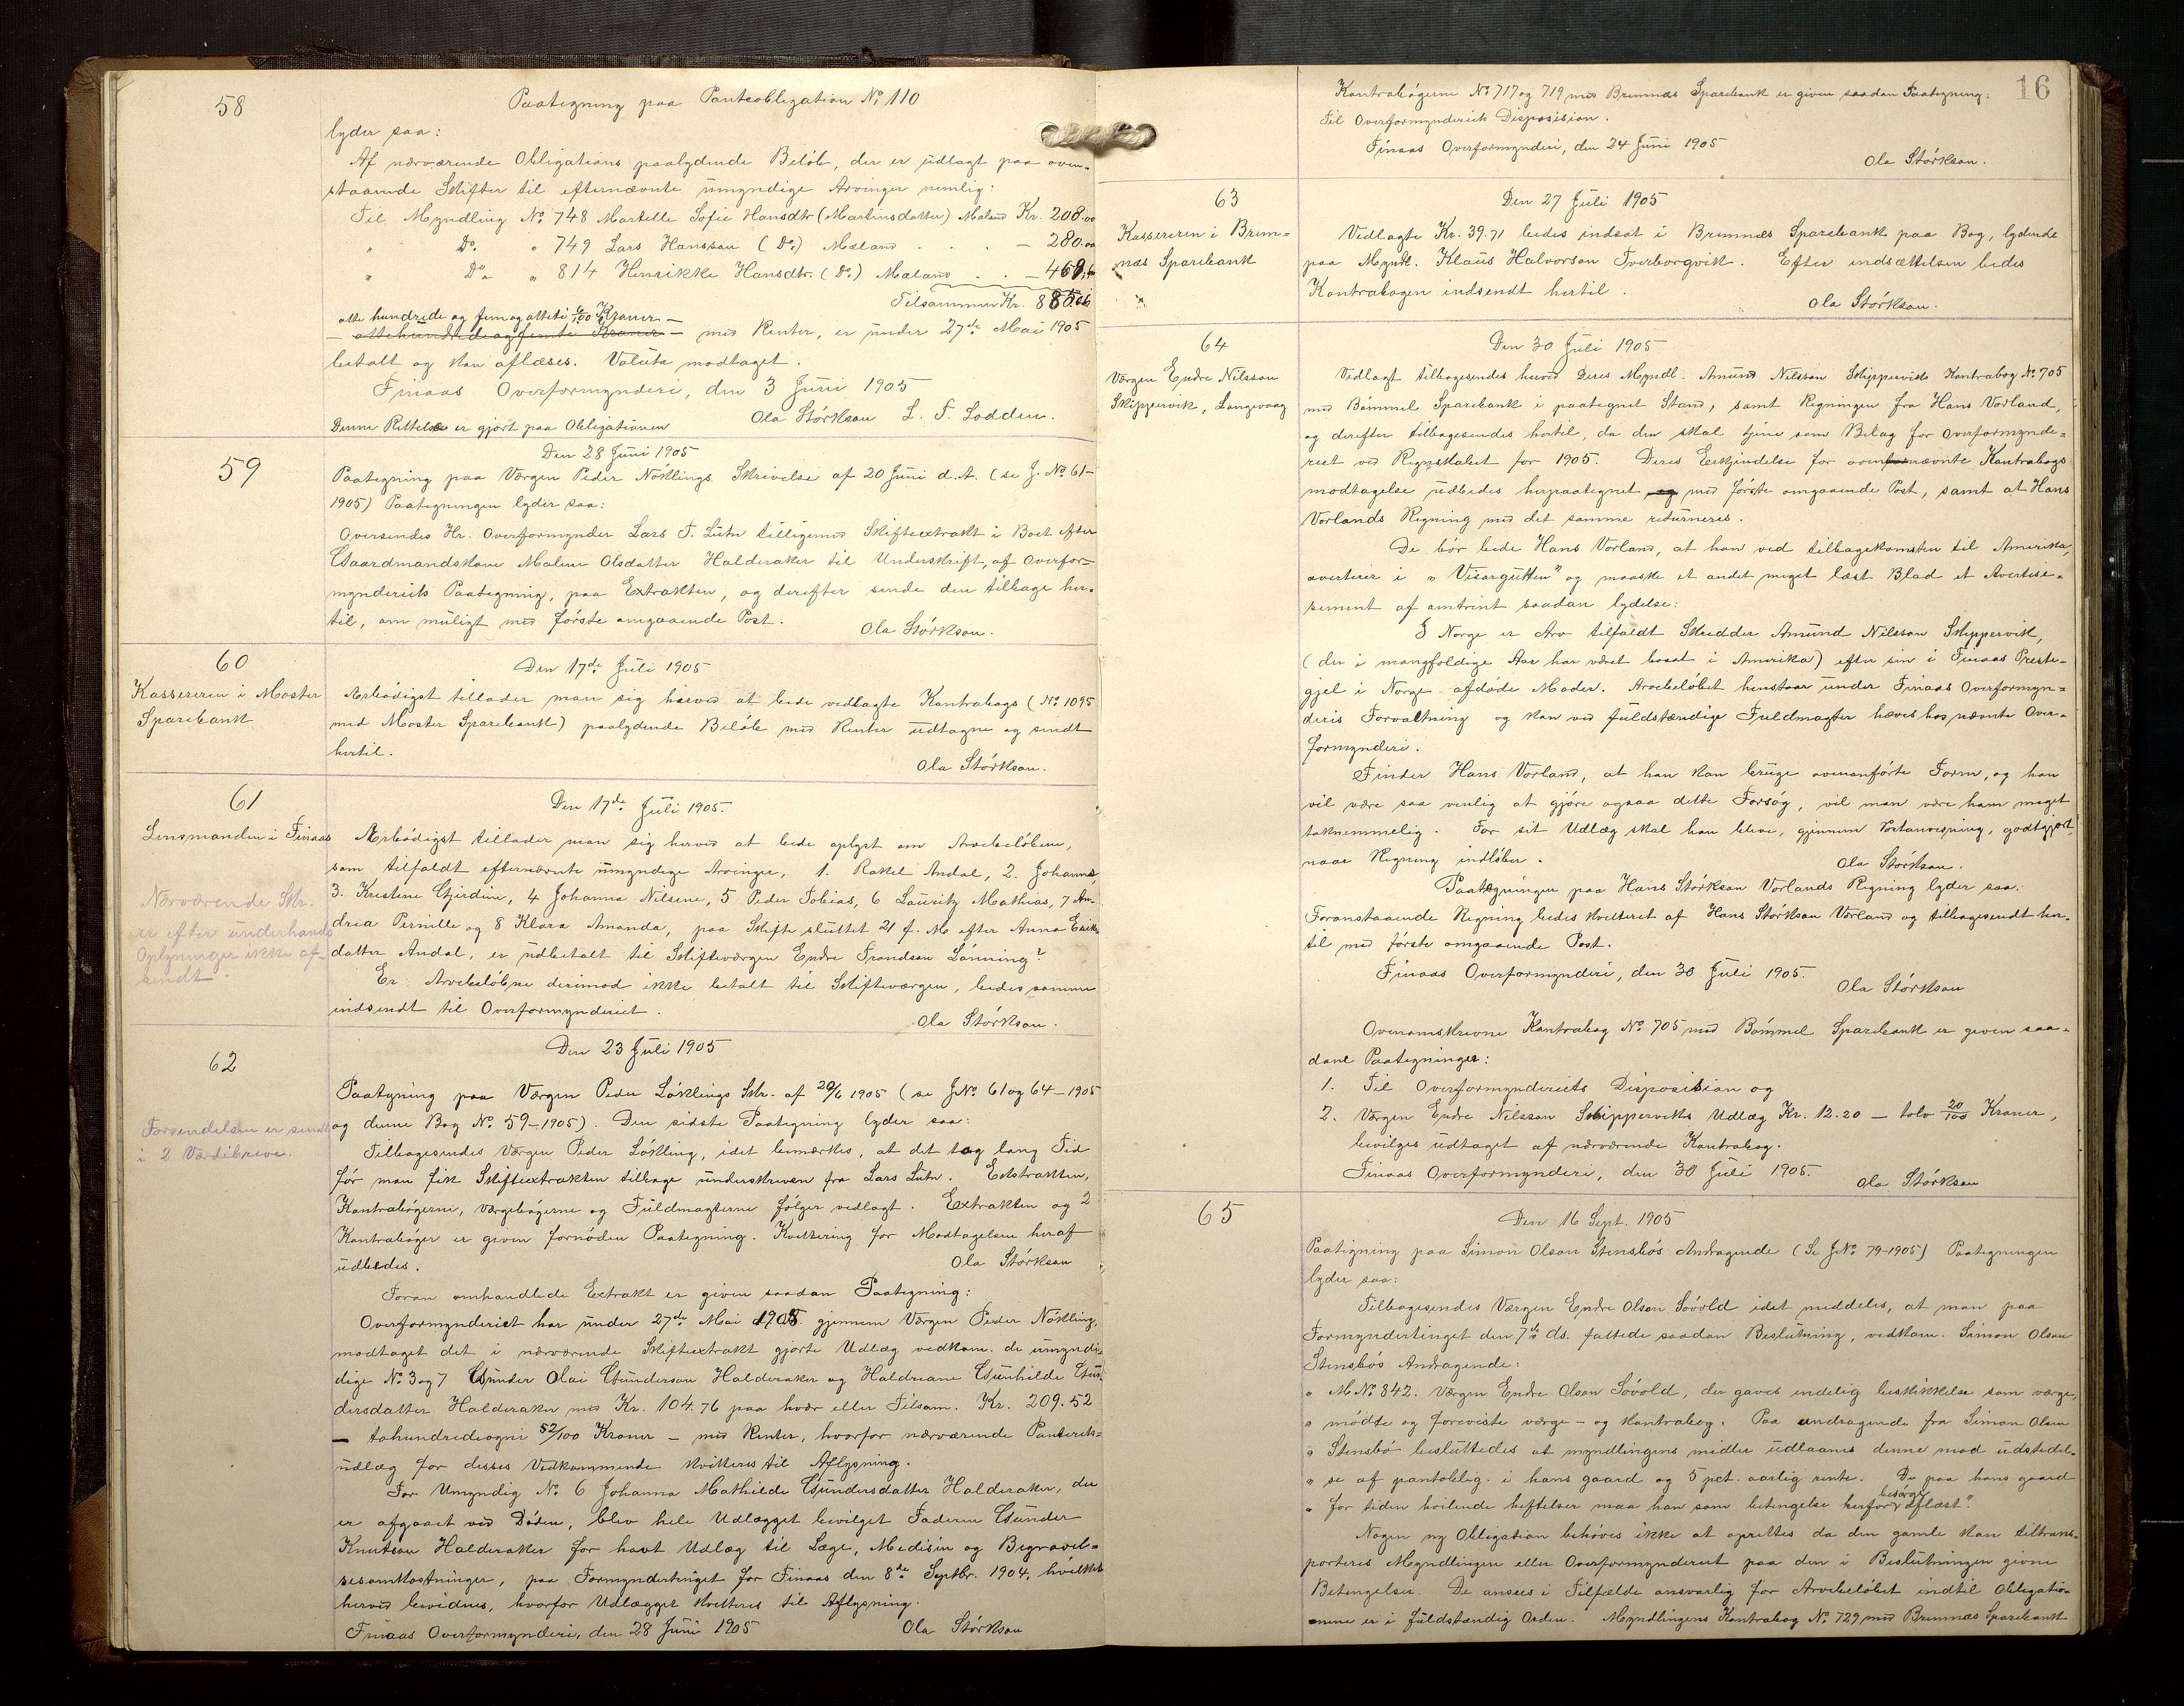 58
Paategning paa Panteobligation No. 110
lyder saa:
Af nærværende Obligations paalydende Beløb, der er udlagt paa oven-
staaende Skifter til efternævnte umyndige Arvinger nemlig:
Til Myndling No. 748 Martelle Sofie Hansdtr (Martinsdatter) Mæland Kr. 208.00
" Do. " 749 Lars Hansson (Do.) Mæland . . . — 280.00
" Do. " 814 Henrikke Hansdtr. (Do.) Mæland . . —
Tilsammen Kr.
otte hundrede og fem og otteti 6/100 Kroner —
— ottehundredeogfemti Kroner — med Renter, er under 27de Mai 1905
betalt og kan aflæses. Valuta modtaget.
Finaas Overformynderi, den 3 Juni 1905
Ola Størkson L. T. Lodden.
Denne Rettelse er gjort paa Obligationen
59
Den 28 Juni 1905
Paategning paa Værgen Peder Nøklings Skrivelse af 20 Juni d. A. (se J. No 61-
1905) Paategningen lyder saa:
Oversendes Hr. Overformynder Lars T. Lutn tilligemed Skifteextrakt i Boet efter
Gaardmandskone Malene Olsdatter Halderaker til Underskrift, af Overfor-
mynderiets Paategning, paa Extrakten, og derefter sende den tilbage her-
til, om muligt med første omgaaende Post.
Ola Størkson.
60
Kassereren i Moster
Sparebank
Den 17de Juli 1905
Ærbødigst tillader man sig herved at bede vedlagte Kontrabogs (No. 1095
med Moster Sparebank) paalydende Beløb med Renter udtagne og sendt
hertil.
Ola Størkson.
61
Lensmanden i Finaas
Nærværende Skr.
er efter underhands
Oplysninger ikke af-
sendt.
Den 17de Juli 1905.
Ærbødigst tillader man sig herved at bede oplyst om Arvebeløbene,
som tilfaldt efternævnte umyndige Arvinger, 1. Rakel Andal, 2. Johanna,
3. Kristine Gjerdine, 4 Johanna Nilsine, 5 Peder Tobias, 6 Lauritz Mathias, 7 An-
drea Pernille og 8 Klara Amanda, paa Skifte sluttet 21 f. M. efter Anna Eriks-
datter Andal, er udbetalt til Skifteværgen Endre Trondsen Lønning?
Er Arvebeløbne derimod ikke betalt til Skifteværgen, bedes samme
indsendt til Overformynderiet.
Ola Størkson.
62
Forsendelsen er sendt
i 2 Værdibreve.
Den 23 Juli 1905
Paategning paa Værgen Peder Løklings Skr. af 20/6 1905 (se JNo. 61 og 64-1905
og denne Bog No. 59-1905). Den sidste Paategning lyder saa:
Tilbagesendes Værgen Peder Løkling, idet bemærkes, at det tog lang Tid
før man fik Skifteextrakten tilbage underskreven fra Lars Lutn. Extrakten,
Kontrabøgerne, værgebøgerne og Fuldmagterne følger vedlagt. Extrakten og 2
Kontrabøger er given fornøden Paategning. Kvittering for Modtagelsen heraf
udbedes.
Ola Størkson
Foran omhandlede Extrakt er given saadan Paategning:
Overformynderiet har under 27de Mai 1905 gjennem Værgen Peder Nøkling,
modtaget det i nærværende Skifteextrakt gjorte Udlæg vedkom. de umyndi-
dige No. 3 og 7 Gunder Olai Gunderson Halderaker og Haldriane Gunhilde Gun-
dersdatter Halderaker med Kr. 104.76 paa hver eller Tilsam. Kr. 209.52
— tohundredeogni 52/100 Kroner — med Renter, hvorfor nærværende Panterets-
udlæg for disses Vedkommende kvitteres til Aflysning.
For Umyndig No. 6 Johanna Mathilde Gundersdatter Halderaker, der
er afgaaet ved Døden, blev hele Udlægget bevilget Faderen Gunder
Knutson Halderaker for havt Udlæg til Læge, Medisin og Begravel-
sesomkostninger, paa Formyndertinget for Finaas den 8de Septbr. 1904, hvilket
herved bevidnes, hvorfor Udlægget kvitteres til Aflysning.
Finaas Overformynderi, den 28 Juni 1905
Ola Størkson
16
Kontrabøgerne No 717 og 719 med Bremnæs Sparebank er given saadan Paategning:
Til Overformynderiets Disposision.
Finaas Overformynderi, den 24 Juni 1905
Ola Størkson.
63
Kassereren i Brem-
næs Sparebank
Den 27 Juli 1905
Vedlagte Kr. 39.71 bedes indsat i Bremnæs Sparebank paa Bog, lydende
paa Myndl. Klaus Halvorson Tverborgvik. Efter indsættelsen bedes
Kontrabogen indsendt hertil.
Ola Størkson.
64
Værgen Endre Nilsson
Skippervik, Langevaag
Den 30 Juli 1905
Vedlagt tilbagesendes herved Deres Myndl. Amund Nilsson Skipperviks Kontrabog No 705
med Bømmel Sparebank i paategnet Stand, samt Regningen fra Hans Vorland,
og derefter tilbagesendes hertil, da den skal tjene som Bilag for Overformynde-
riet ved Regnskabet for 1905. Deres Erkjendelse for ovennævnte Kontrabogs
modtagelse udbedes herpaategnet og med første omgaaende Post, samt at Hans
Vorlands Regning med det samme returneres.
De bør bede Hans Vorland, at han ved tilbagekomsten til Amerika,
averterer i "Visergutten" og maaske et andet meget læst Blad et Avertise-
sement af omtrent saadan lydelse:
I Norge er Arv tilfaldt Skredder Amund Nilsson Skippervik,
(der i mangfoldige Aar har været bosat i Amerika) efter sin i Finaas Preste-
gjel i Norge afdøde Moder. Arvebeløbet henstaar under Finaas Overformyn-
deris Forvaltning og kan ved fuldstændige Fuldmagter hæves hos nævnte Over-
formynderi.
Finder Hans Vorland, at han kan bruge ovenanførte Form, og han
vil være saa venlig at gjøre ogsaa dette Forsøg, vil man være ham meget
taknemmelig. For sit Udlæg skal han blive, gjennem Postanvisning, godtgjort,
naar Regning indløber.
Ola Størkson.
Paategningen paa Hans Størkson Vorlands Regning lyder saa:
Foranstaaende Regning bedes kvitteret af Hans Størkson Vorland og tilbagesendt her-
til med første omgaaende Post.
Finaas Overformynderi, den 30 Juli 1905.
Ola Størkson
Ovenomskrevne Kontrabog No. 705 med Bømmel Sparebank er given saa-
dane Paategninger:
1. Til Overformynderiets Disposision og
2. Værgen Endre Nilsson Skipperviks Udlæg Kr. 12.20 — tolv 20/100 Kroner,
bevilges udtaget af nærværende Kontrabog.
Finaas Overformynderi, den 30 Juli 1905.
Ola Størkson
65
Den 16 Sept. 1905
Paategning paa Simon Olson Stensbøs Andragende (Se JNo. 79-1905) Paategningen
lyder saa:
Tilbagesendes Værgen Endre Olson Søvold idet meddeles, at man paa
Formyndertinget den 7de ds. fattede saadan Beslutning, vedkom. Simon Olson
Stensbøs Andragende:
" M No. 842. Værgen Endre Olson Søvold, der gaves endelig beskikkelse som værge,
" mødte og foreviste værge- og kontrabog. Paa andragende fra Simon Olsen
" Stensbø besluttedes at myndlingens midler udlaanes denne mod udstedel-
" se af pantoblig. i hans gaard og 5 pct. aarlig rente. De paa hans gaard
" for tiden hvilende heftelser maa han som betingelse herfor besørge aflæst".
Nogen ny Obligation behøves ikke at oprettes da den gamle kan tiltrans-
porteres Myndlingen eller Overformynderiet paa den i Beslutningen givne
Betingelser. De ansees i Tilfælde ansvarlig for Arvebeløbet indtil Obligatio-
nene er i fuldstændig Orden. Myndlingens Kontrabog No. 729 med Bremnæs Sparebank